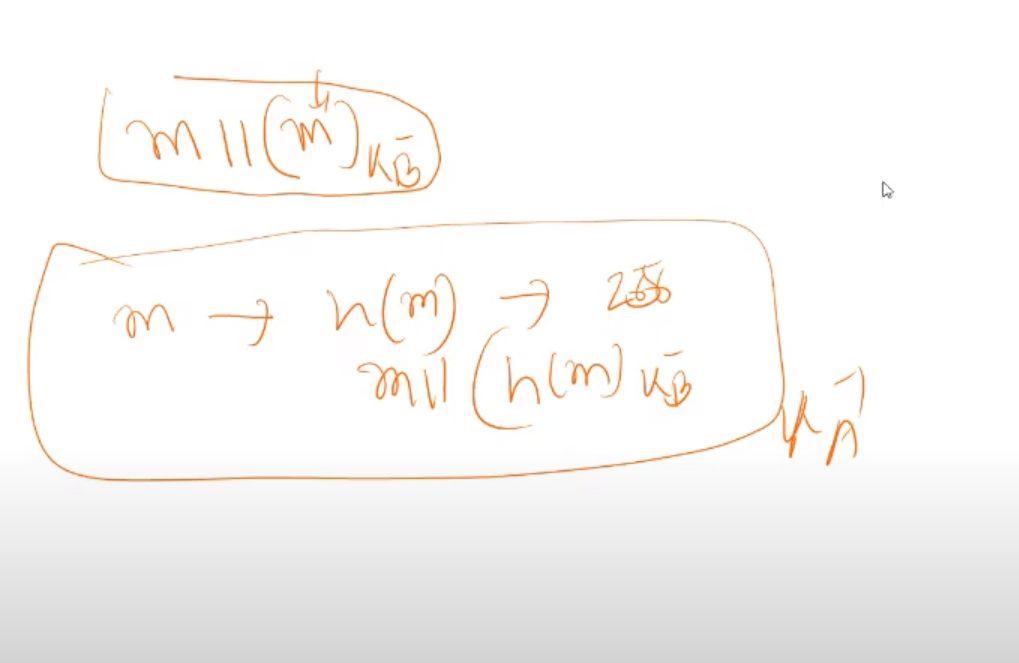 m || (m)K_B^-
m → h(m) → 256
m || (h(m)K_B^-
K_A^-